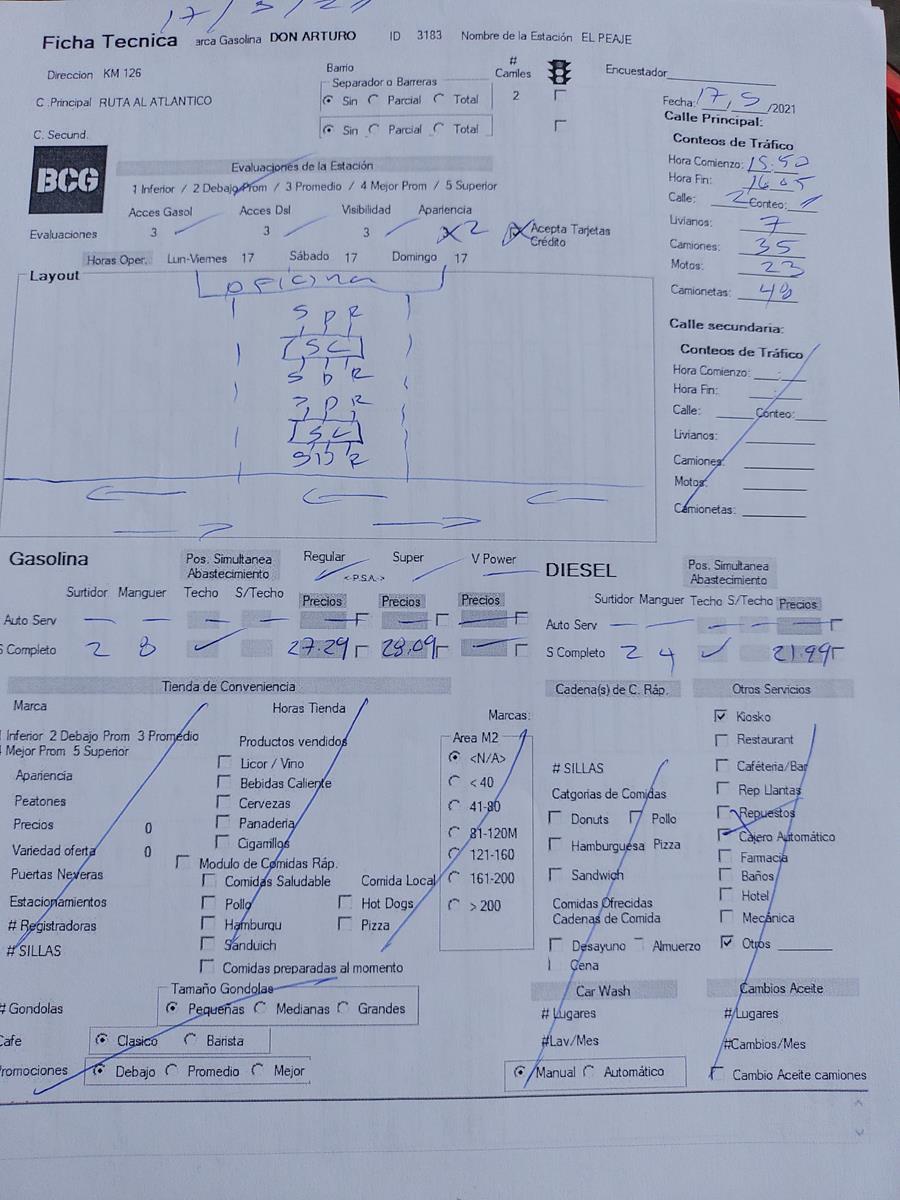 17/5/21
Ficha Tecnica arca Gasolina DON ARTURO ID 3183 Nombre de la Estación EL PEAJE
Direccion KM 126
Barrio
Separador o Barreras
# Carriles
Encuestador
Sin Parcial Total 2
C .Principal RUTA AL ATLANTICO
Sin Parcial Total
C. Secund.
Fecha: 17, 5 /2021
Calle Principal:
Conteos de Tráfico
Hora Comienzo: 15:50
Hora Fin: 16:05
Calle: 2 Conteo: 1
Livianos: 7
Camiones: 35
Motos: 23
Camionetas: 48
BCG
Evaluaciones de la Estación
1 Inferior / 2 Debajo Prom / 3 Promedio / 4 Mejor Prom / 5 Superior
Acces Gasol Acces Dsl Visibilidad Apariencia
Evaluaciones 3 3 3 2 Acepta Tarjetas
Crédito
Horas Oper. Lun-Viernes 17 Sábado 17 Domingo 17
Layout
oficina
S P R
S C
S D R
P R
S C
S D R
Calle secundaria:
Conteos de Tráfico
Hora Comienzo: :
Hora Fin: :
Calle: Conteo:
Livianos:
Camiones:
Motos:
Camionetas:
Gasolina
Pos. Simultanea
Abastecimiento
Regular Super V Power
<-P.S.A.->
Surtidor Manguer Techo S/Techo Precios Precios Precios
Auto Serv
S Completo 2 8 27.29 28,09
DIESEL
Pos. Simultanea
Abastecimiento
Surtidor Manguer Techo S/Techo Precios
Auto Serv
S Completo 2 4 21.99
Tienda de Conveniencia
Marca Horas Tienda
Marcas:
Inferior 2 Debajo Prom 3 Promedio
Mejor Prom 5 Superior
Apariencia
Peatones
Precios 0
Variedad oferta 0
Puertas Neveras
Estacionamientos
# Registradoras
# SILLAS
Productos vendidos
Licor / Vino
Bebidas Caliente
Cervezas
Panaderia
Cigarrillos
Modulo de Comidas Ráp.
Comidas Saludable Comida Local
Pollo Hot Dogs
Hamburqu Pizza
Sanduich
Comidas preparadas al momento
Area M2
<N/A>
< 40
41-80
81-120M
121-160
161-200
> 200
# Gondolas
Tamaño Gondolas
Pequeñas Medianas Grandes
Cafe Clasico Barista
romociones Debajo Promedio Mejor
Cadena(s) de C. Ráp.
# SILLAS
Catgorias de Comidas
Donuts Pollo
Hamburguesa Pizza
Sandwich
Comidas Ofrecidas
Cadenas de Comida
Desayuno Almuerzo
Cena
Car Wash
# Lugares
#Lav/Mes
Manual Automático
Otros Servicios
Kiosko
Restaurant
Caféteria/Bar
Rep Llantas
Repuestos
Cajero Automático
Farmacia
Baños
Hotel
Mecánica
Otros
Cambios Aceite
# Lugares
#Cambios/Mes
Cambio Aceite camiones